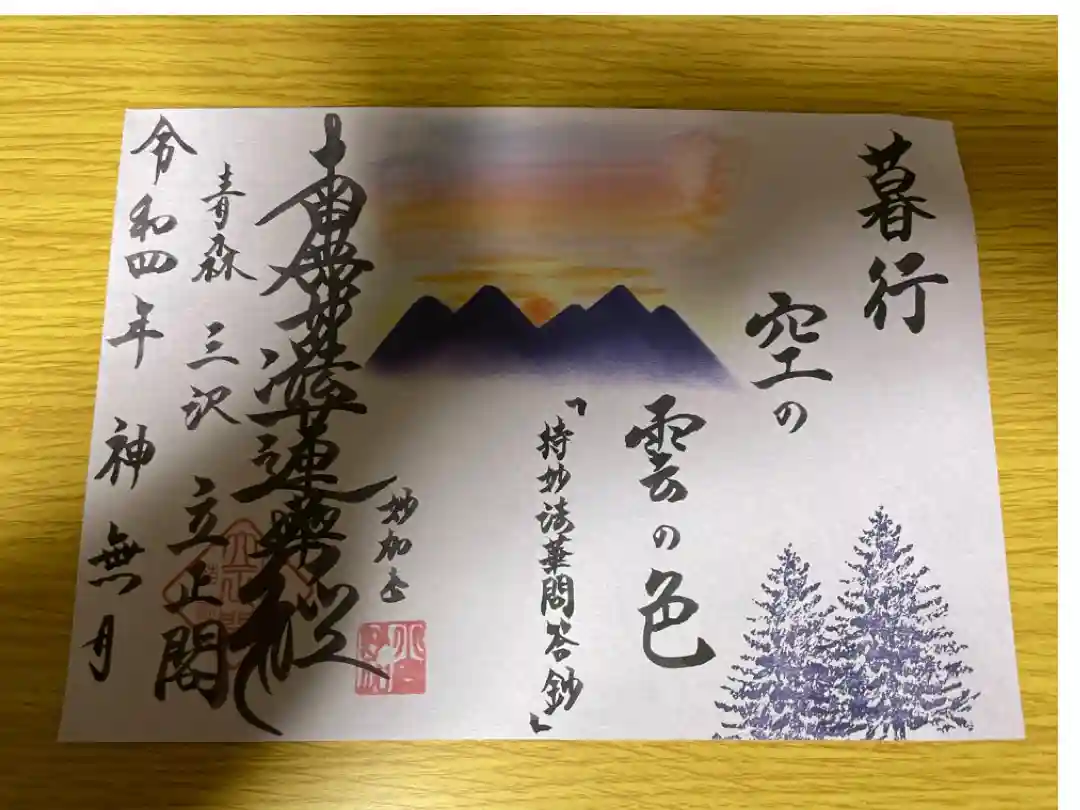 暮行
空の
雲の色
「持妙法華問答鈔」
妙加士
南無妙法蓮華経
青森 三沢 立正閣
令和四年 神無月